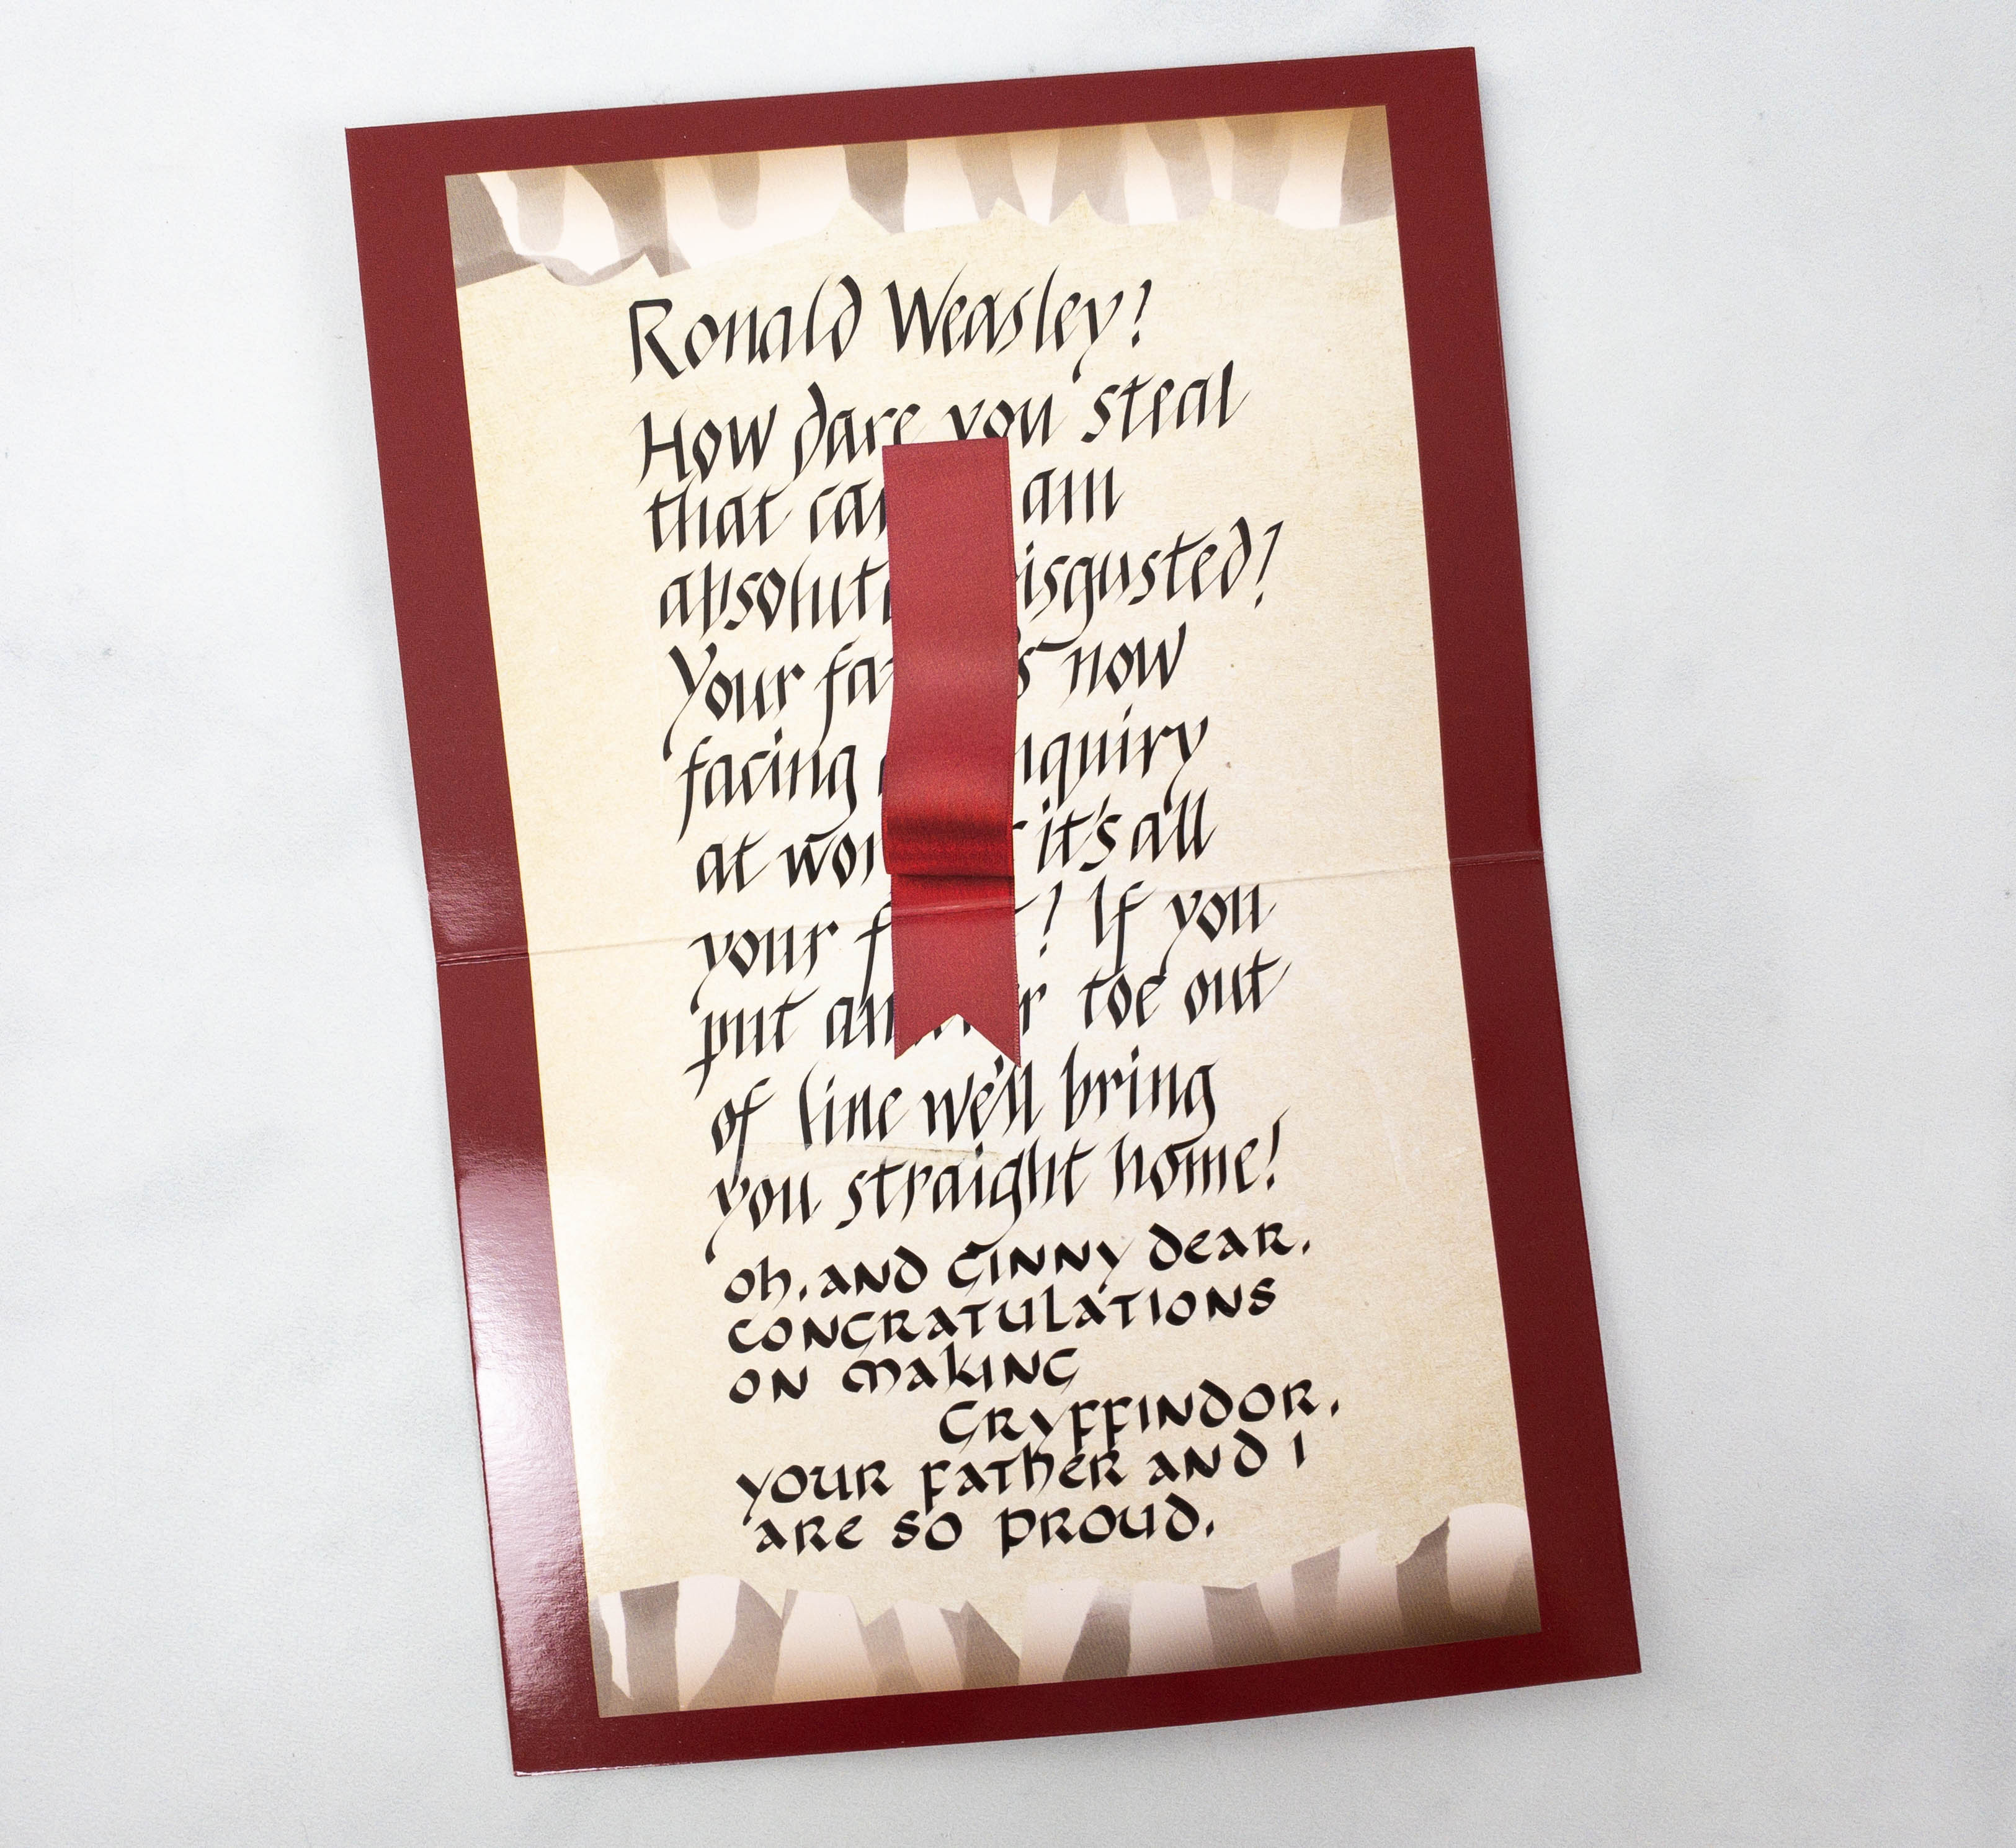 Ronald Weasley!
How dare you steal
that car am
absolutely disgusted!
Your father's now
facing
at work it's all
your fault! If you
put another toe out
of line we'll bring
you straight home!
Oh, and Ginny dear,
congratulations
on making
Gryffindor,
your father and I
are so proud.